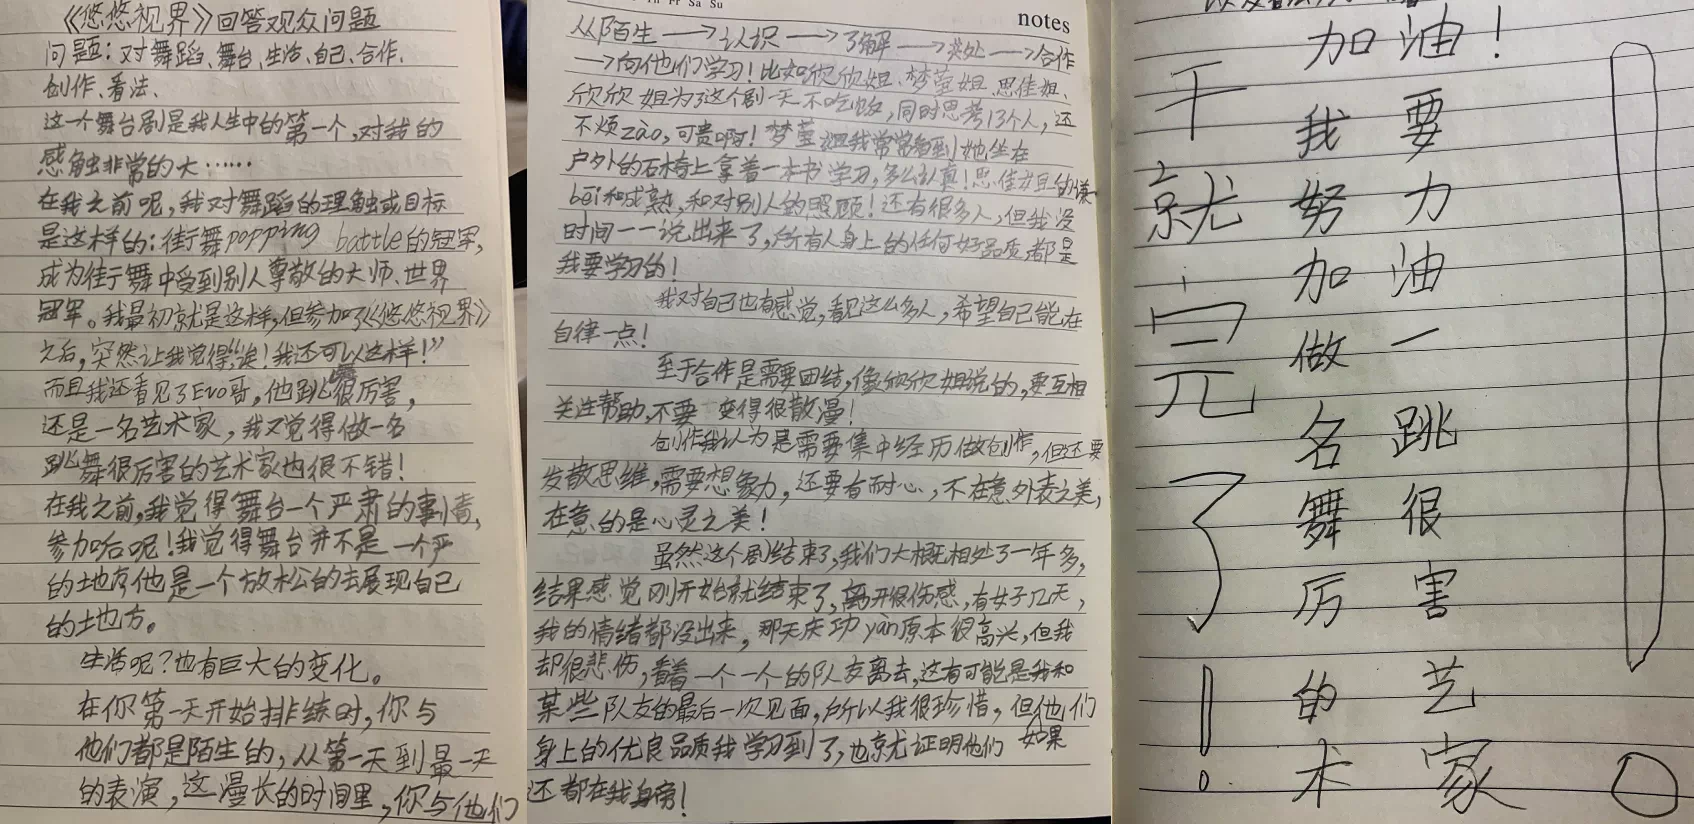 《悠悠视界》回答观众问题
问题：对舞蹈、舞台、生活、自己、合作、
创作、看法、
这一个舞台剧是我人生中的第一个，对我的
感触非常的大……
在我之前呢，我对舞蹈的理触或目标
是这样的：街舞popping battle的冠军，
成为街舞中受到别人尊敬的大师、世界
冠军。我最初就是这样，但参加了《悠悠视界》
之后，突然让我觉得“诶！我还可以这样！”
而且我还看见了Evo哥，他跳很厉害，
还是一名艺术家，我又觉得做一名
跳舞很厉害的艺术家也很不错！
在我之前，我觉得舞台一个严肃的事情，
参加后呢！我觉得舞台并不是一个严
的地方他是一个放松的去展现自己
的地方。
生活呢？也有巨大的变化。
在你第一天开始排练时，你与
他们都是陌生的，从第一天到最一天
的表演，这漫长的时间里，你与他们
notes
从陌生→认识→了解→共处→合作
→向他们学习！比如欣欣姐、梦莹姐、思佳姐、
欣欣姐为了这个剧一天不吃饭，同时思考13个人，还
不烦zào，可贵啊！梦莹姐我常常看到她坐在
户外的石椅上拿着一本书学习，多么认真！思佳姐的谦
bēi和成熟，和对别人的照顾！还有很多人，但我没
时间一一说出来了，所有人身上的任何好品质，都是
我要学习的！
我对自己也有感觉，看见这么多人，希望自己能在
自律一点！
至于合作是需要团结，像欣欣姐说的，要互相
关注帮助，不要 变得很散漫！
创作我认为是需要集中经历做创作，但还要
发散思维，需要想象力，还要有耐心，不在意外表之美，
在意的是心灵之美！
虽然这个剧结束了，我们大概相处了一年多，
结果感觉刚开始就结束了，离开很伤感，有好几天，
我的情绪都没出来，那天庆功yàn原本很高兴，但我
却很悲伤，看着一个一个的队友离去，这有可能是我和
某些队友的最后一次见面，所以我很珍惜，但他们
身上的优良品质我学习到了，也就证明他们如果
还都在我身旁！
加油！
我要努力加油做一名跳舞很厉害的艺术家
干就完了！